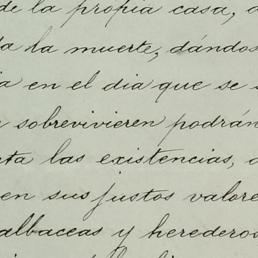 de la propia casa,
la muerte, dándos
en el dia que se s
sobrevivieren podrán
las existencias,
en sus justos valore
albaceas y herederos